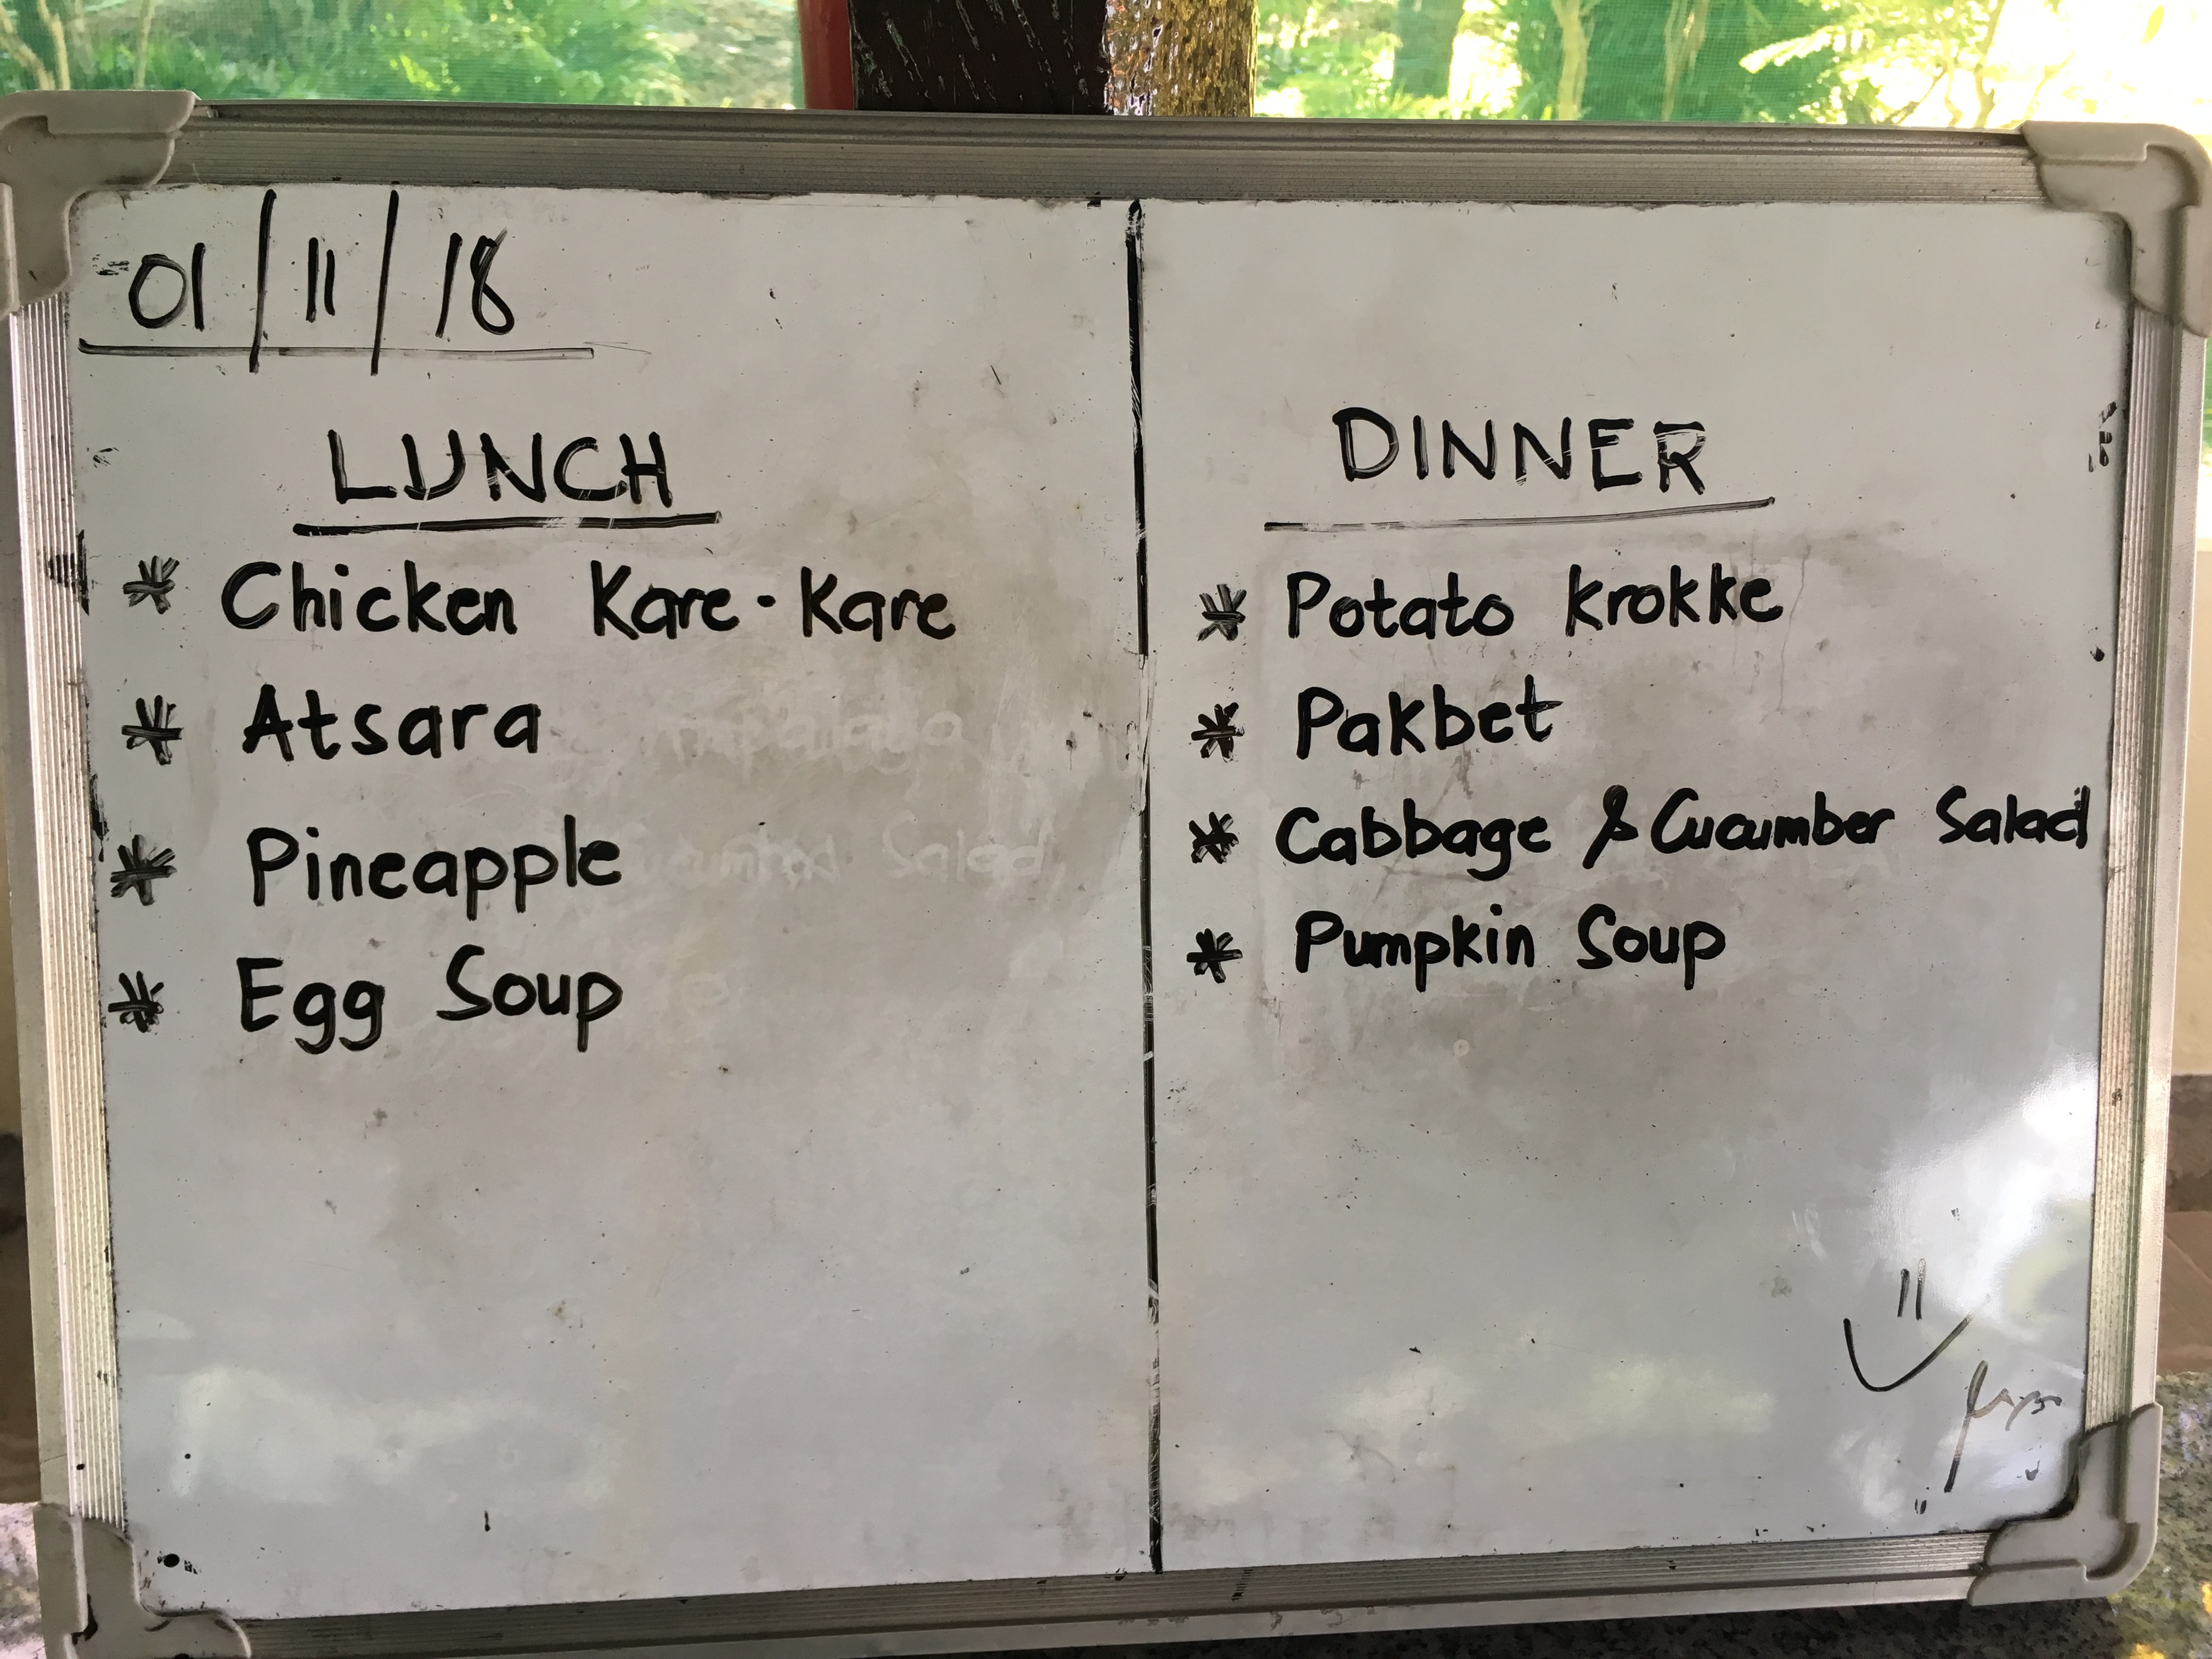 01/11/18
LUNCH
* Chicken Kare-Kare
* Atsara
* Pineapple
* Egg Soup
DINNER
* Potato Krokke
* Pakbet
* Cabbage & Cucumber Salad
* Pumpkin Soup